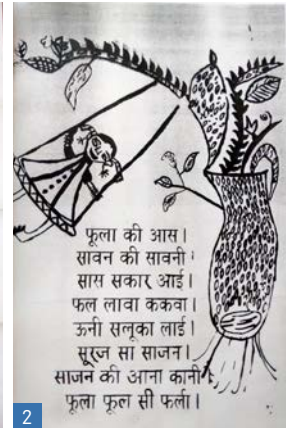 फूला की आस।
सावन की सावनी।
सास सकार आई।
फल लावा ककवा।
ऊनी सलूका लाई।
सूरज सा साजन।
साजन की आना कानी।
फूला फूल सी फर्ला।
2